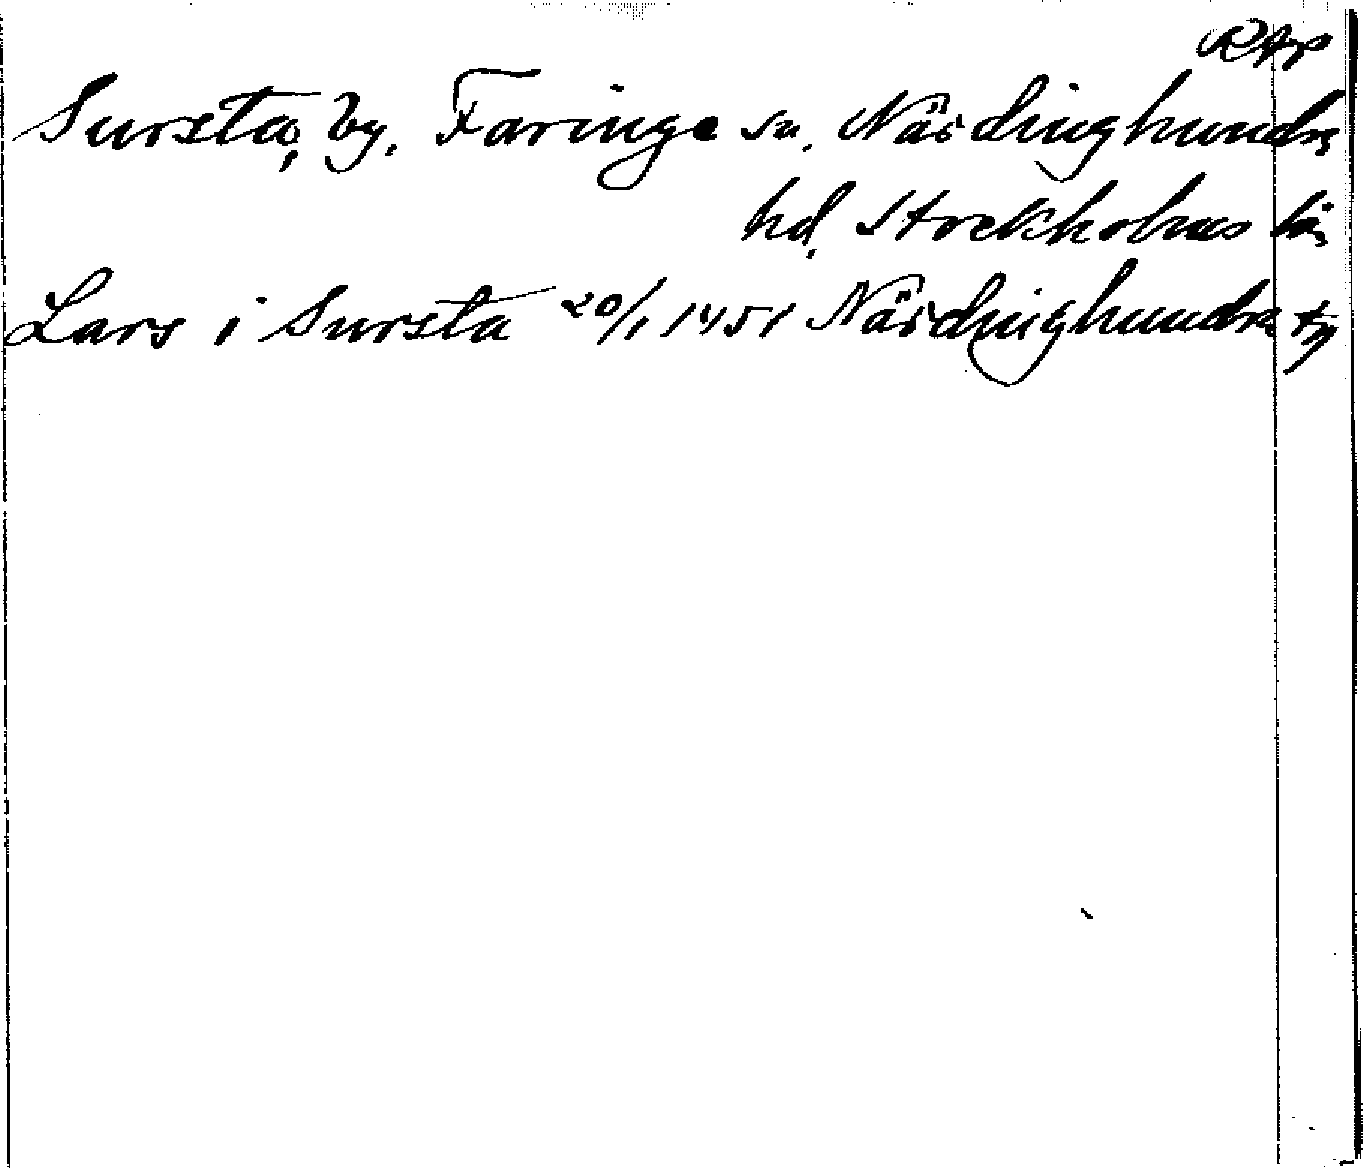 RAp
Sursta, by. Faringe sn. Närdinghundra
hd. Stockholms län
Lars i Sursta 20/1 1451 Närdinghundra tg